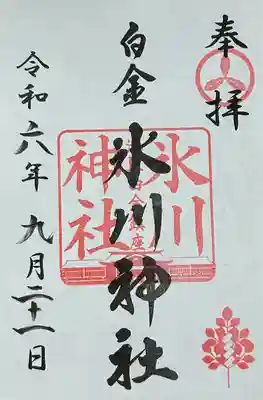 奉拝
白金 氷川神社
氷川
神社
令和六年 九月二十一日